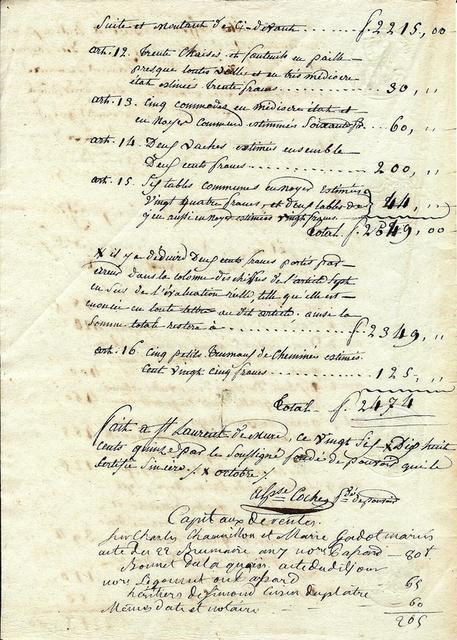 Suite et montant de Ci-devant f. 2215,00
art. 12. Trente Chaises et fauteuils en paille
presque toutes vieille et en très médiocre
état estimés trente francs 30,"
art. 13. Cinq commodes en médiocre état et
en noyer commun estimmés Soixante fr. 60,"
art. 14. Deux vaches estimés ensemble
Deux cents francs 200,"
art. 15. Six tables communes en noyer estimées
vingt quatre francs, et deux tables de
jeu aussi en noyer estimées vingt francs 44,"
Total f. 2549,00
x il y a a deduire Deux cents francs portés par
erreur dans la colonne des chiffres de l'article Sept
en Sus de l'évaluation réelle telle qu'elle est
enoncée en toute lettre au dit article. ainsi la
Somme total restera à f. 2349,"
art. 16. Cinq petits Trumeaux de Cheminée estimés
Cent vingt cinq francs 125,"
Total f. 2474
fait a St Laurent de Mure, ce vingt Six x Dix huit
cents quinze par le Soussigné fondé de pouvoir qui le
certifie Sincère /. x octobre /.
fdé de pouvoir
Capitaux de rentes.
Sur Charles et Marie Godot mariés
acte du 22 Brumaire an 7 nore Capard 80f
acte du dit jour
nore 65
héritiers de Simond
Mêmes date et notaire 60
205